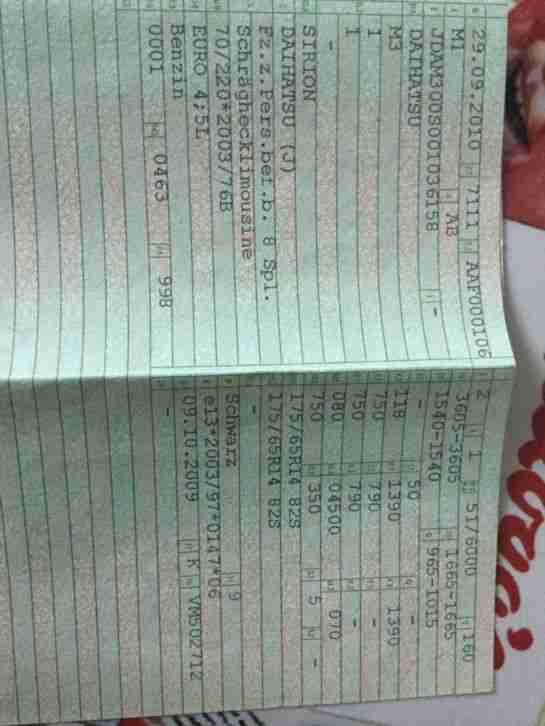 29.09.2010 7111 AAF000106
M1 AB
JDAM300S001036158 -
DAIHATSU
M3
1
1
-
SIRION
DAIHATSU (J)
Fz.z.Pers.bef.b. 8 Spl.
Schräghecklimousine
70/220*2003/76B
EURO 4;5L
Benzin
0001 0463 998
2 1 51/6000 160
3605-3605 1665-1665
1540-1540 965-1015
- 50 -
118 1390 1390
750 790 -
750 790 -
080 04500 070
750 350 5 -
175/65R14 82S
175/65R14 82S
-
Schwarz 9
e13*2003/97*0147*06
09.10.2009 K VM502712
-